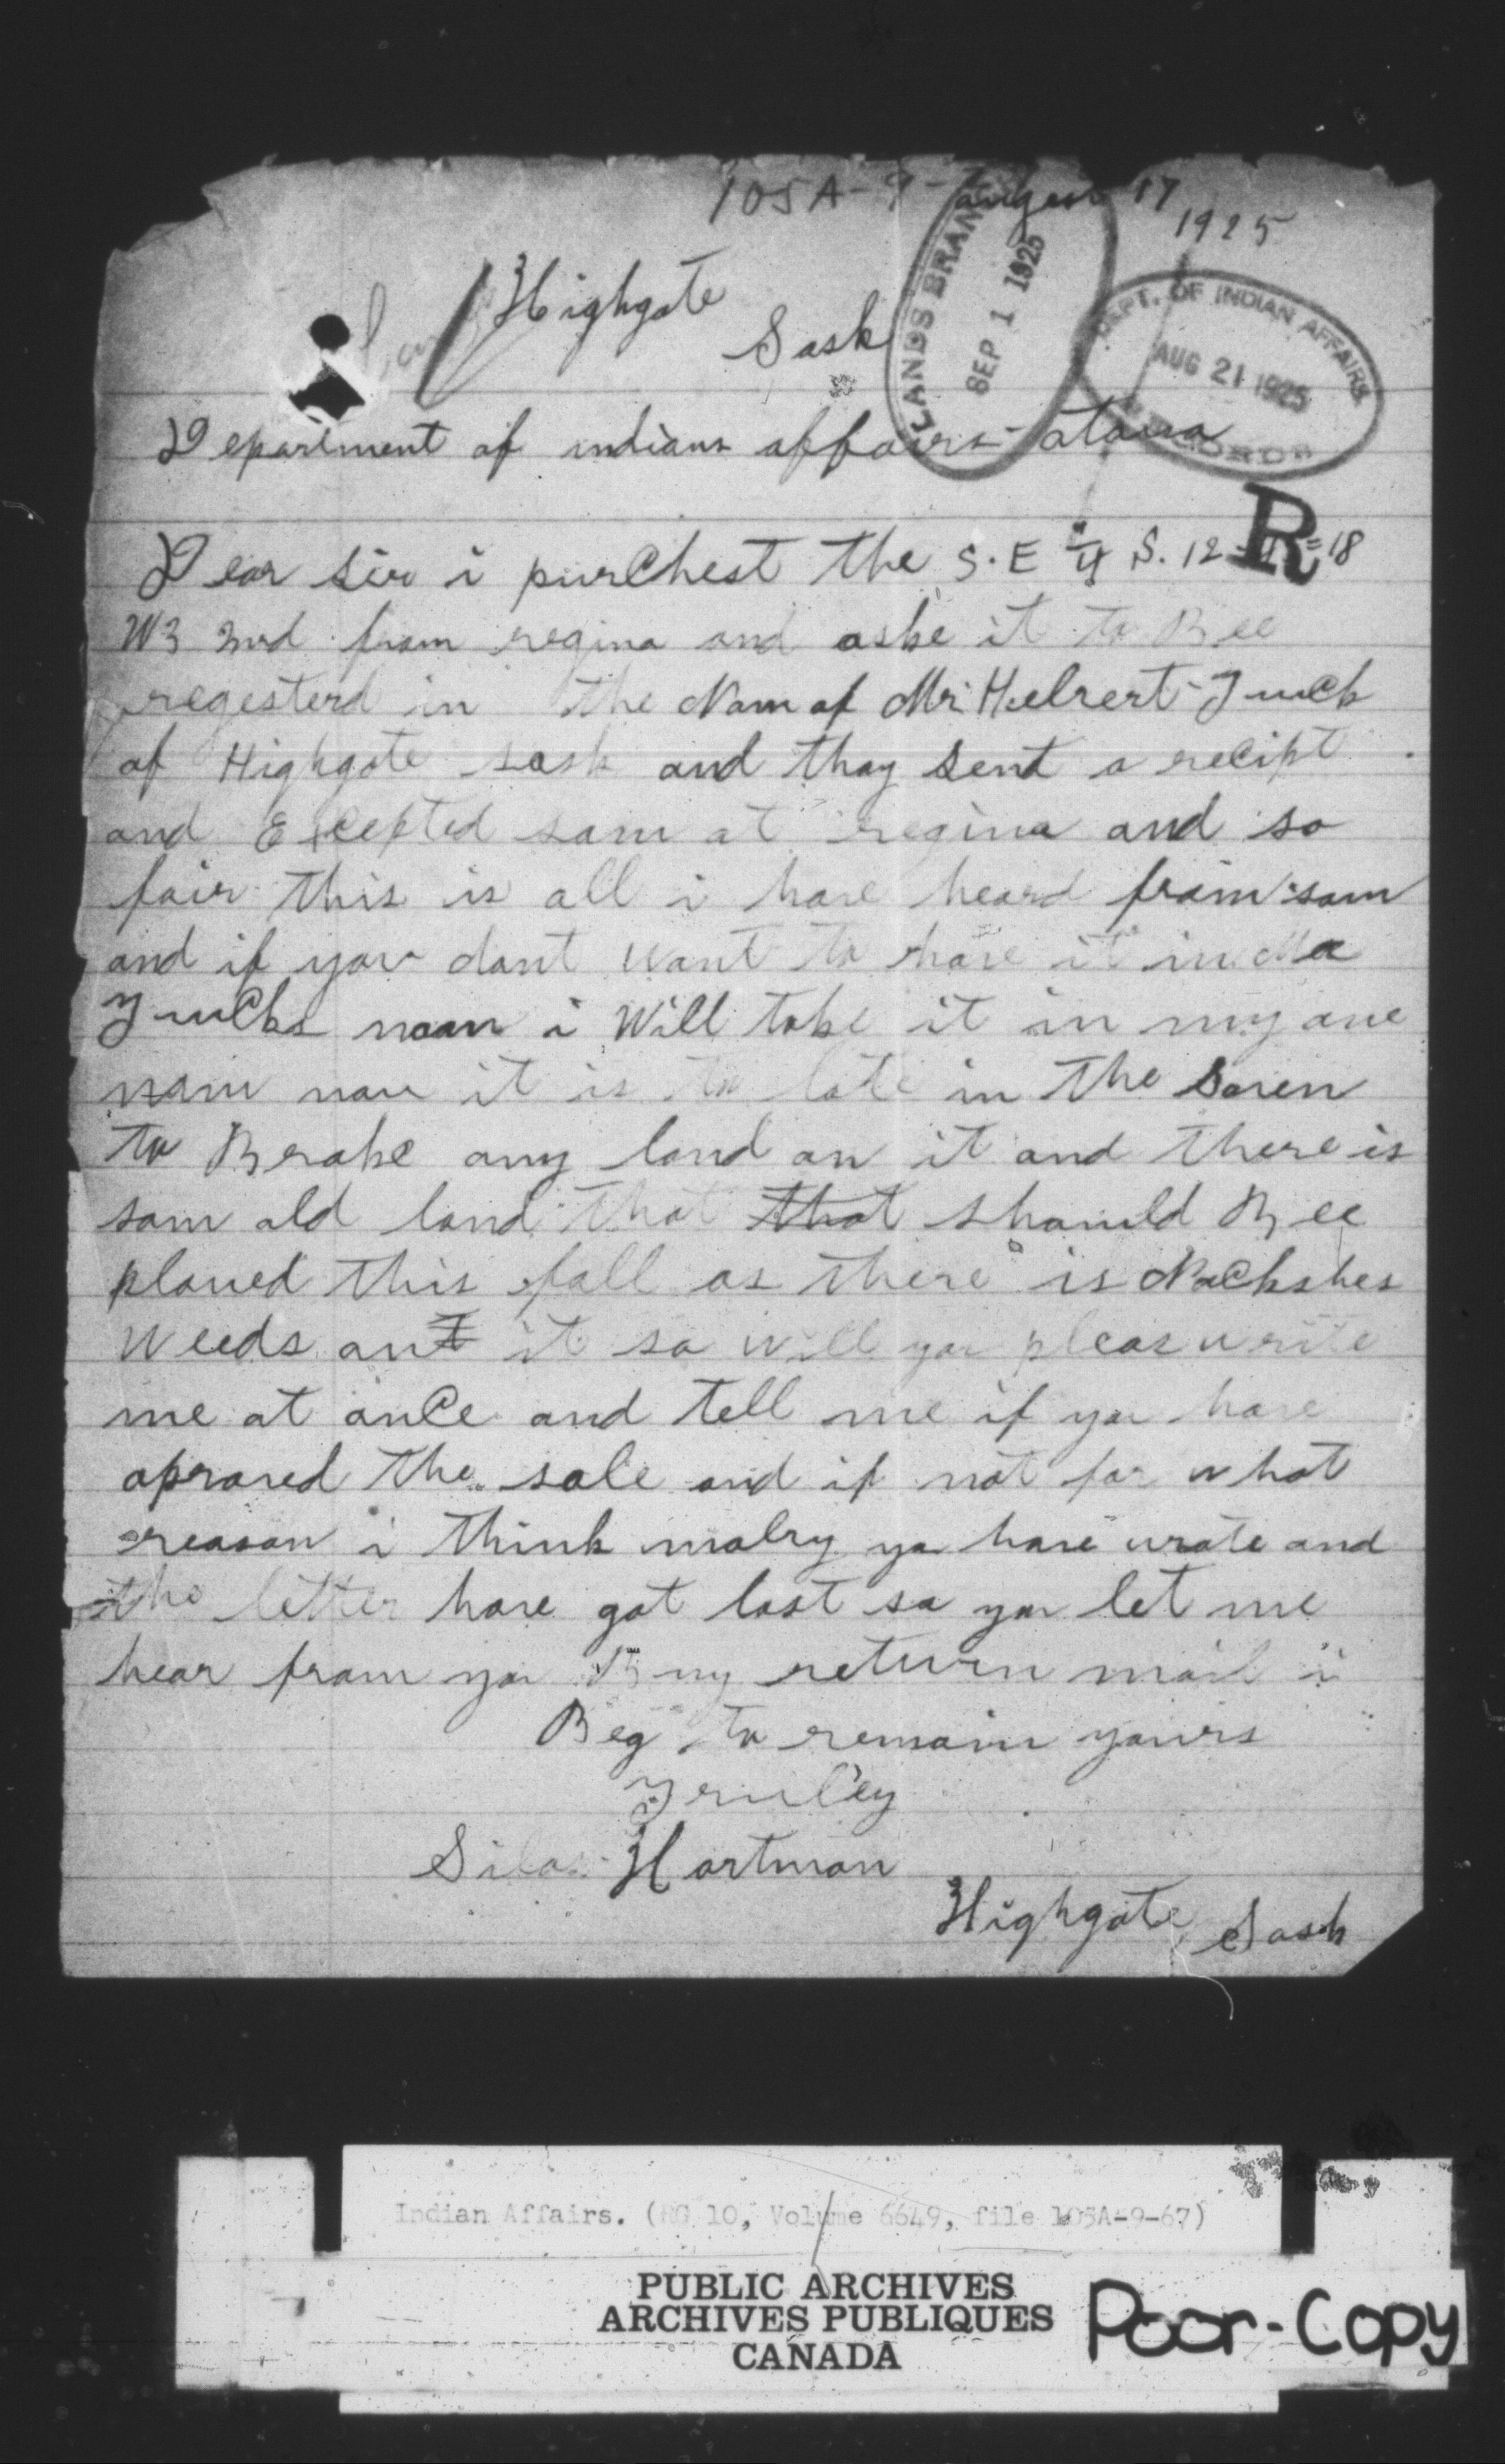 105A-9-7
august 17
1925
Highgate
Sask
LANDS BRAN
SEP 1 1925
DEPT. OF INDIAN AFFAIRS
AUG 21 1925
RECORDS
Department of indians affairs - atawa
R
Dear Sir i purChest the S.E 1/4 S. 12 18
W3 mrd from regina and aske it to Bee
regesterd in the Nam of Mr. Hulrert Juck
of Highgate sask and thay sent a reCipt
and ExCepted sam at regina and so
fair this is all i have heard from sam
and if you dont want to have it in Mr
JuCks nam i Will take it in my one
nam now it is to late in the Soren
to Brake any land on it and there is
sam old land that that should Bee
plowed this fall as there is Nackshes
Weeds ant it so will you pleas write
me at onCe and tell me if you have
aproved the sale and if not for what
reason i think malry yo have wrote and
the letter have got lost so you let me
hear from you By return mail i
Beg to remain yours
Truley
Silas Hartman
Highgate Sask
Indian Affairs. (RG 10, Volume 6649, file 105A-9-67)
PUBLIC ARCHIVES
ARCHIVES PUBLIQUES
CANADA
Poor-Copy